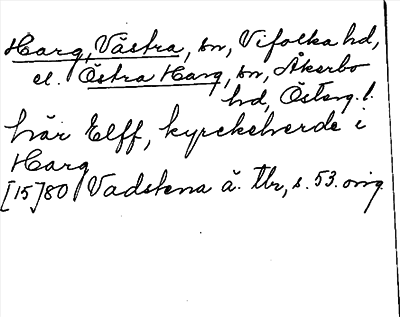 Harg, Västra, sn, Vifolka hd,
el. Östra Harg, sn, Åkerbo
hd, Österg. l.
här Elff, kyrckeherde i
Harg
[15]80 Vadstena ä. Tbr, s. 53. orig.